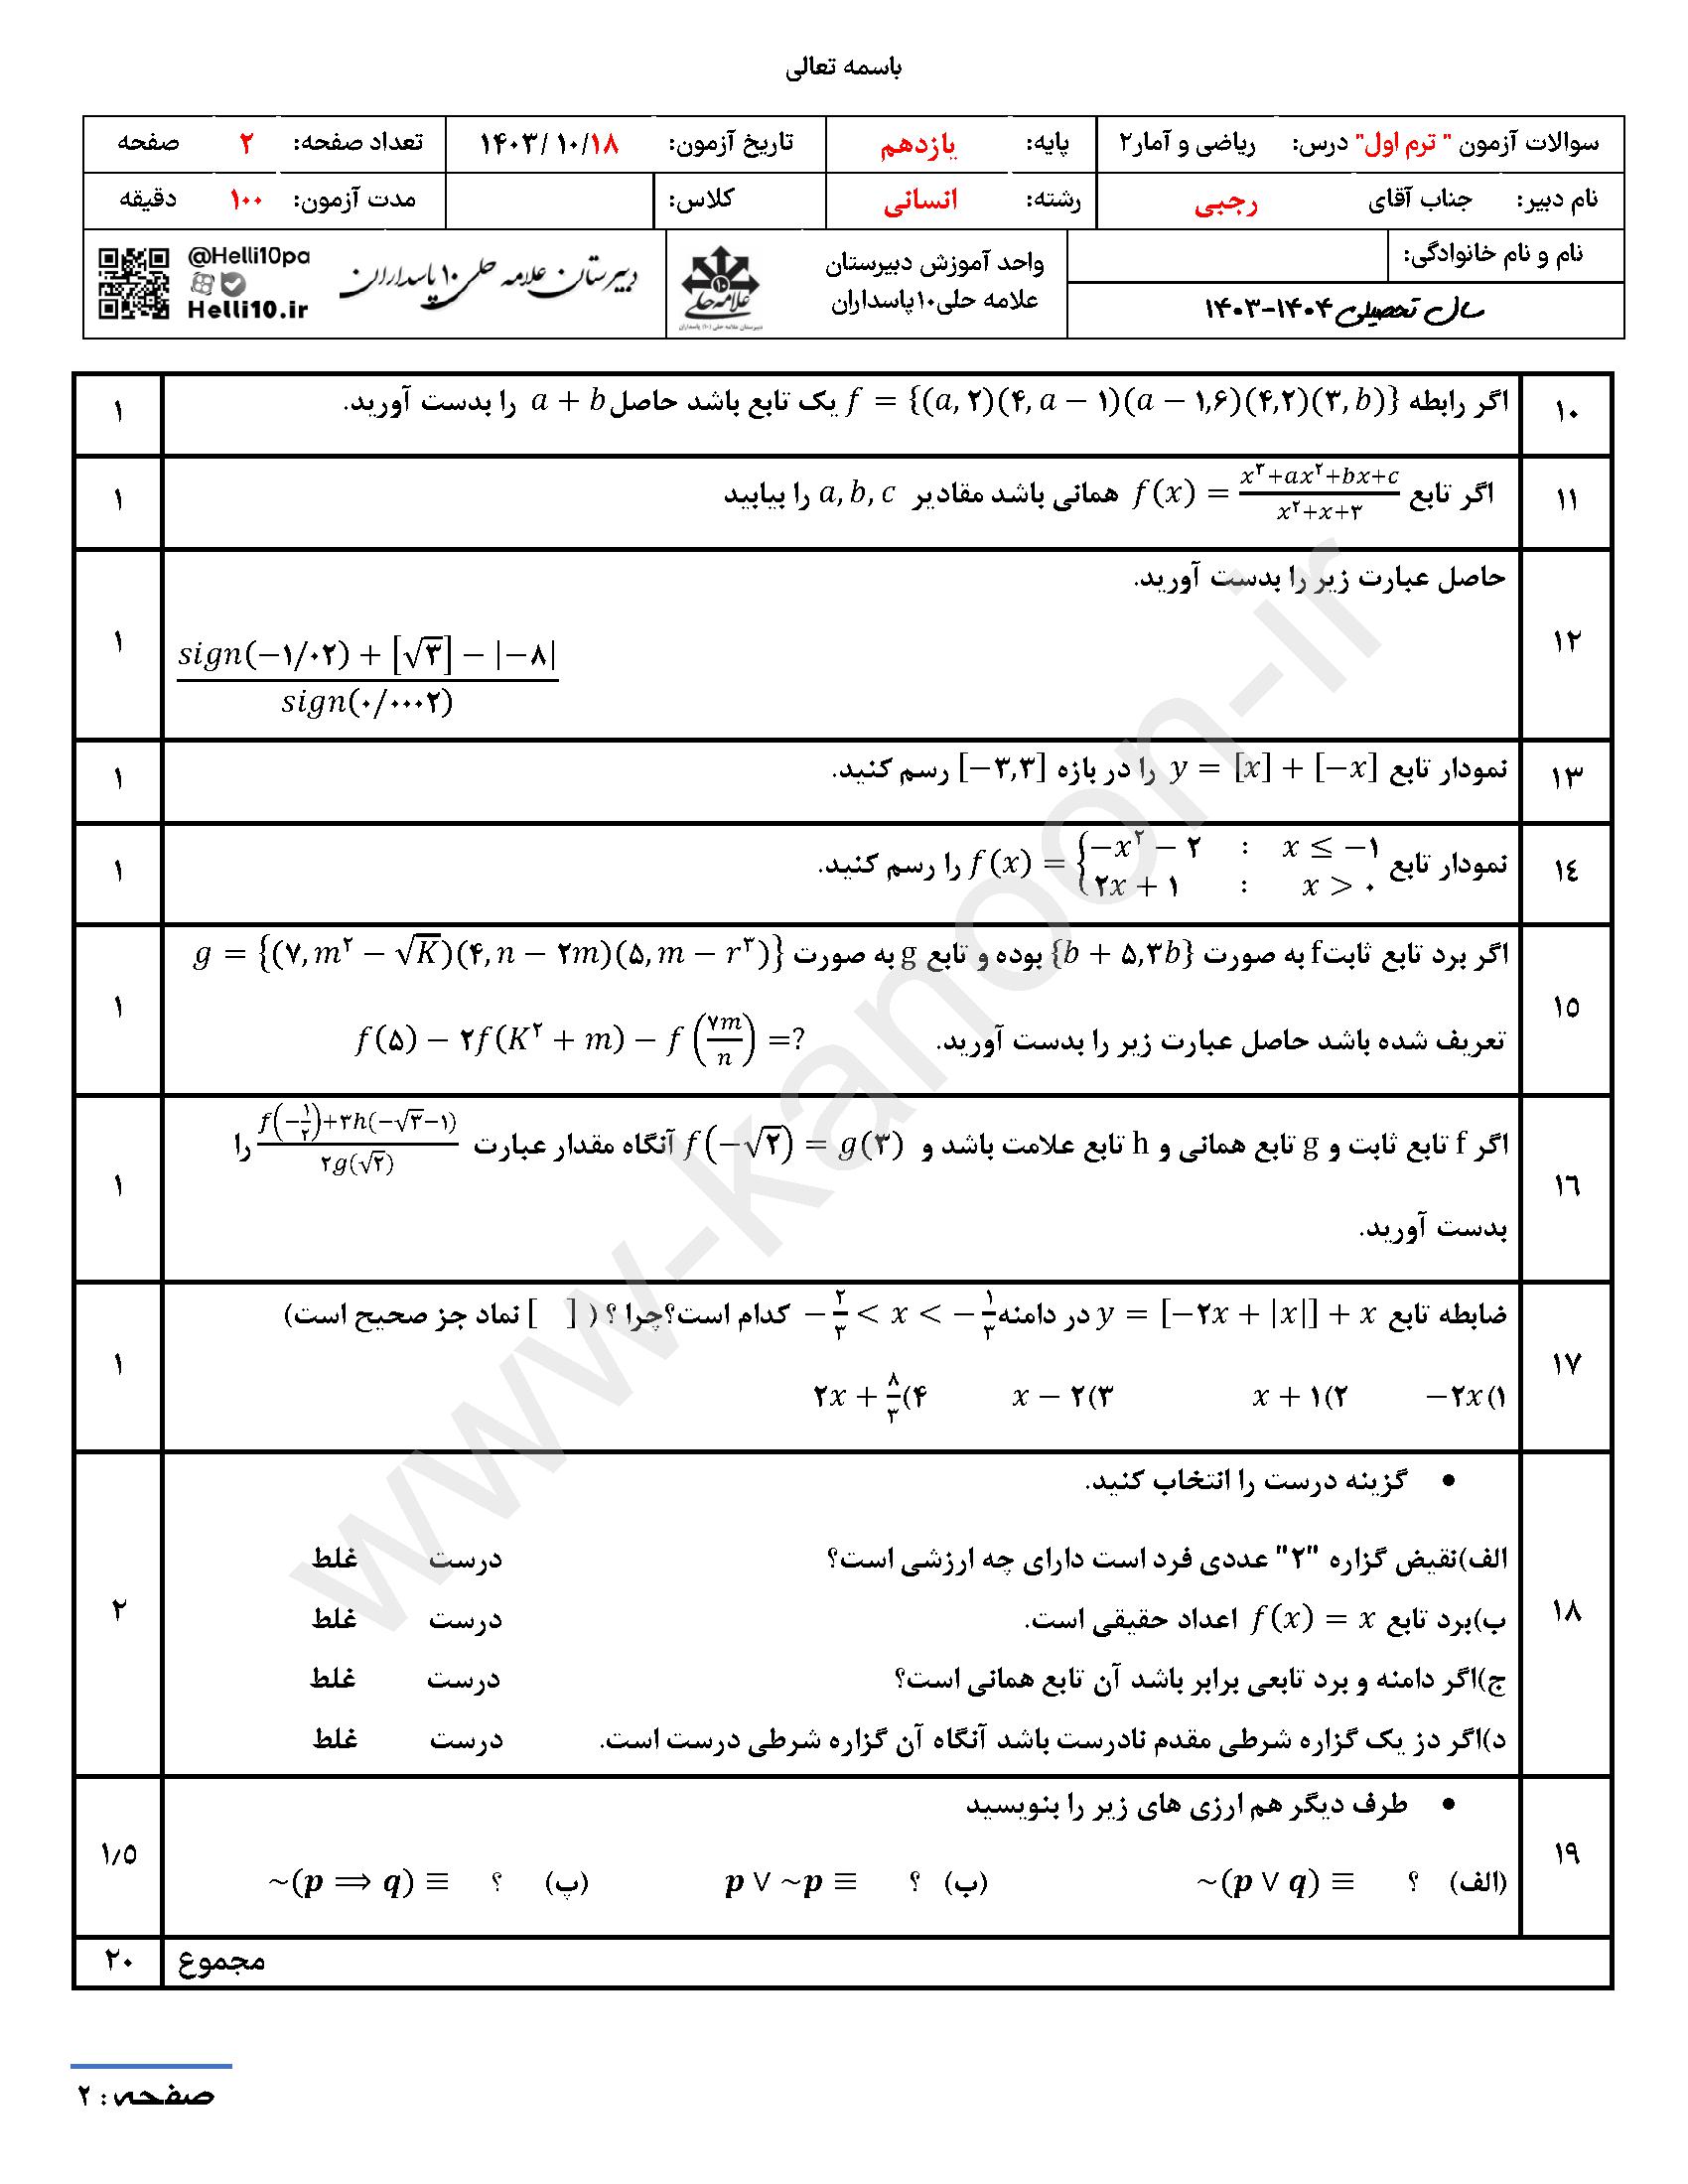 باسمه تعالی
سوالات آزمون " ترم اول" درس: ریاضی و آمار۲ پایه: یازدهم تاریخ آزمون: ۱۴۰۳/۱۰/۱۸ تعداد صفحه: ۲ صفحه
نام دبیر: جناب آقای رجبی رشته: انسانی کلاس: مدت آزمون: ۱۰۰ دقیقه
نام و نام خانوادگی:
سال تحصیلی ۱۴۰۴-۱۴۰۳
واحد آموزش دبیرستان
علامه حلی۱۰پاسداران
علامه حلی
۱۰
دبیرستان علامه حلی (۱۰) پاسداران
دبیرستان علامه حلی ۱۰ پاسداران
@Helli10pa
Helli10.ir
۱۰ اگر رابطه f = {(a, ۲)(۴, a − ۱)(a − ۱,۶)(۴,۲)(۳, b)} یک تابع باشد حاصل a + b را بدست آورید. ۱
۱۱ اگر تابع f(x) = (x^۳+ax^۲+bx+c)/(x^۲+x+۳) همانی باشد مقادیر a, b, c را بیابید ۱
۱۲ حاصل عبارت زیر را بدست آورید. ۱
(sign(−۱/۰۲) + [√۳] − |−۸|)/(sign(۰/۰۰۰۲))
۱۳ نمودار تابع y = [x] + [−x] را در بازه [−۳,۳] رسم کنید. ۱
۱٤ نمودار تابع f(x) = {−x^۲ − ۲ : x ≤ −۱ ۲x + ۱ : x > ۰ را رسم کنید. ۱
۱٥ اگر برد تابع ثابتf به صورت {b + ۵,۳b} بوده و تابع g به صورت g = {(۷, m^۲ − √K)(۴, n − ۲m)(۵, m − r^۳)} ۱
تعریف شده باشد حاصل عبارت زیر را بدست آورید. f(۵) − ۲f(K^۲ + m) − f(۷m/n) =?
۱٦ اگر f تابع ثابت و g تابع همانی و h تابع علامت باشد و f(−√۲) = g(۳) آنگاه مقدار عبارت (f(−۱/۲)+۳h(−√۳−۱))/(۲g(√۲)) را ۱
بدست آورید.
۱۷ ضابطه تابع y = [−۲x + |x|] + x در دامنه −۲/۳ < x < −۱/۳ کدام است؟چرا ؟ ( [ ] نماد جز صحیح است) ۱
۱) −۲x ۲) x + ۱ ۳) x − ۲ ۴) ۲x + ۸/۳
۱۸ • گزینه درست را انتخاب کنید. ۲
الف)نقیض گزاره "۲" عددی فرد است دارای چه ارزشی است؟ درست غلط
ب)برد تابع f(x) = x اعداد حقیقی است. درست غلط
ج)اگر دامنه و برد تابعی برابر باشد آن تابع همانی است؟ درست غلط
د)اگر دز یک گزاره شرطی مقدم نادرست باشد آنگاه آن گزاره شرطی درست است. درست غلط
۱۹ • طرف دیگر هم ارزی های زیر را بنویسید ۱/٥
(الف) ~(p ∨ q) ≡ ؟ (ب) p ∨ ~p ≡ ؟ (پ) ~(p ⟹ q) ≡ ؟
مجموع ۲۰
صفحه: ۲
www-kanoon-ir